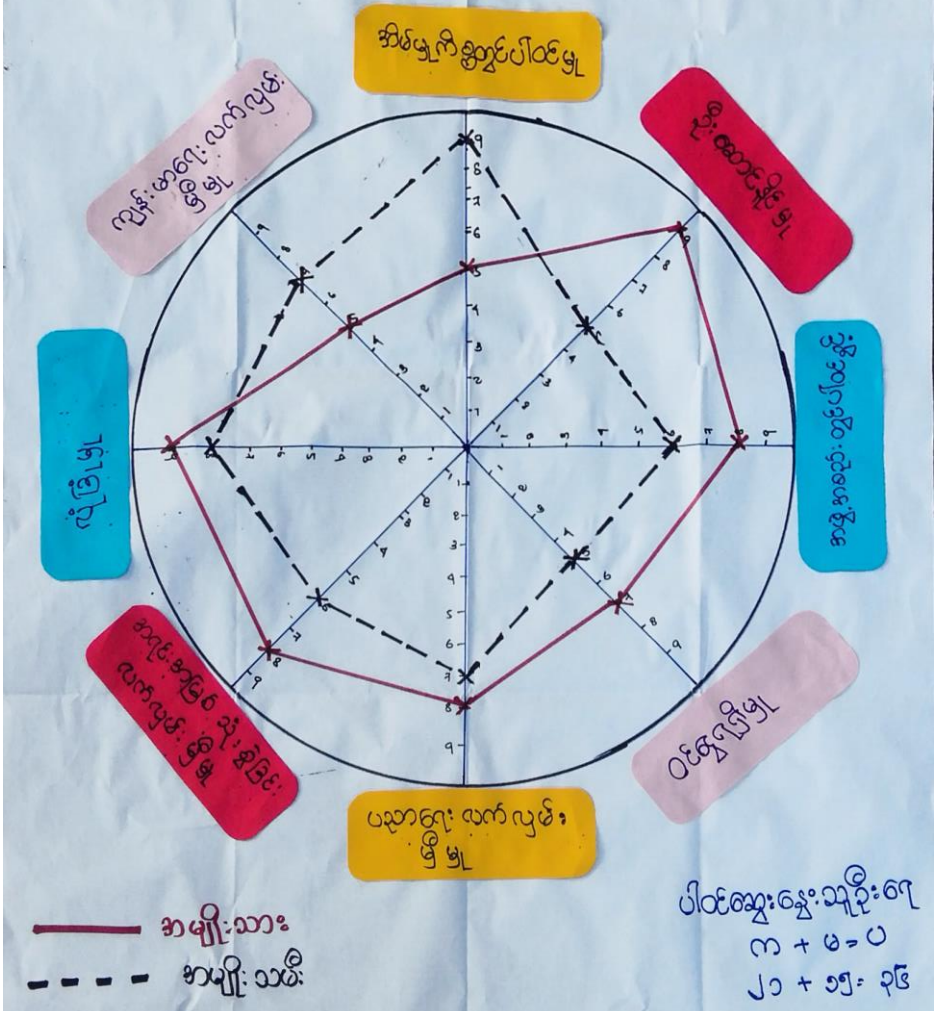 အိမ်မှုကိစ္စတွင်ပါဝင်မှု
ဦးဆောင်နိုင်မှု
အဖွဲ့အစည်းတွင်ပါဝင်နိုင်မှု
ဝင်ငွေရရှိမှု
ပညာရေး လက်လှမ်း
မှီမှု
အရင်းအမြစ် သုံးစွဲခြင်း
လက်လှမ်းမှီမှု
လုံခြုံမှု
ကျန်းမာရေး လက်လှမ်း
မှီမှု
အမျိုးသား
အမျိုးသမီး
ပါဝင်ဆွေးနွေးသူဦးရေ
က + မ = ပ
၂၁ + ၁၅ = ၃၆